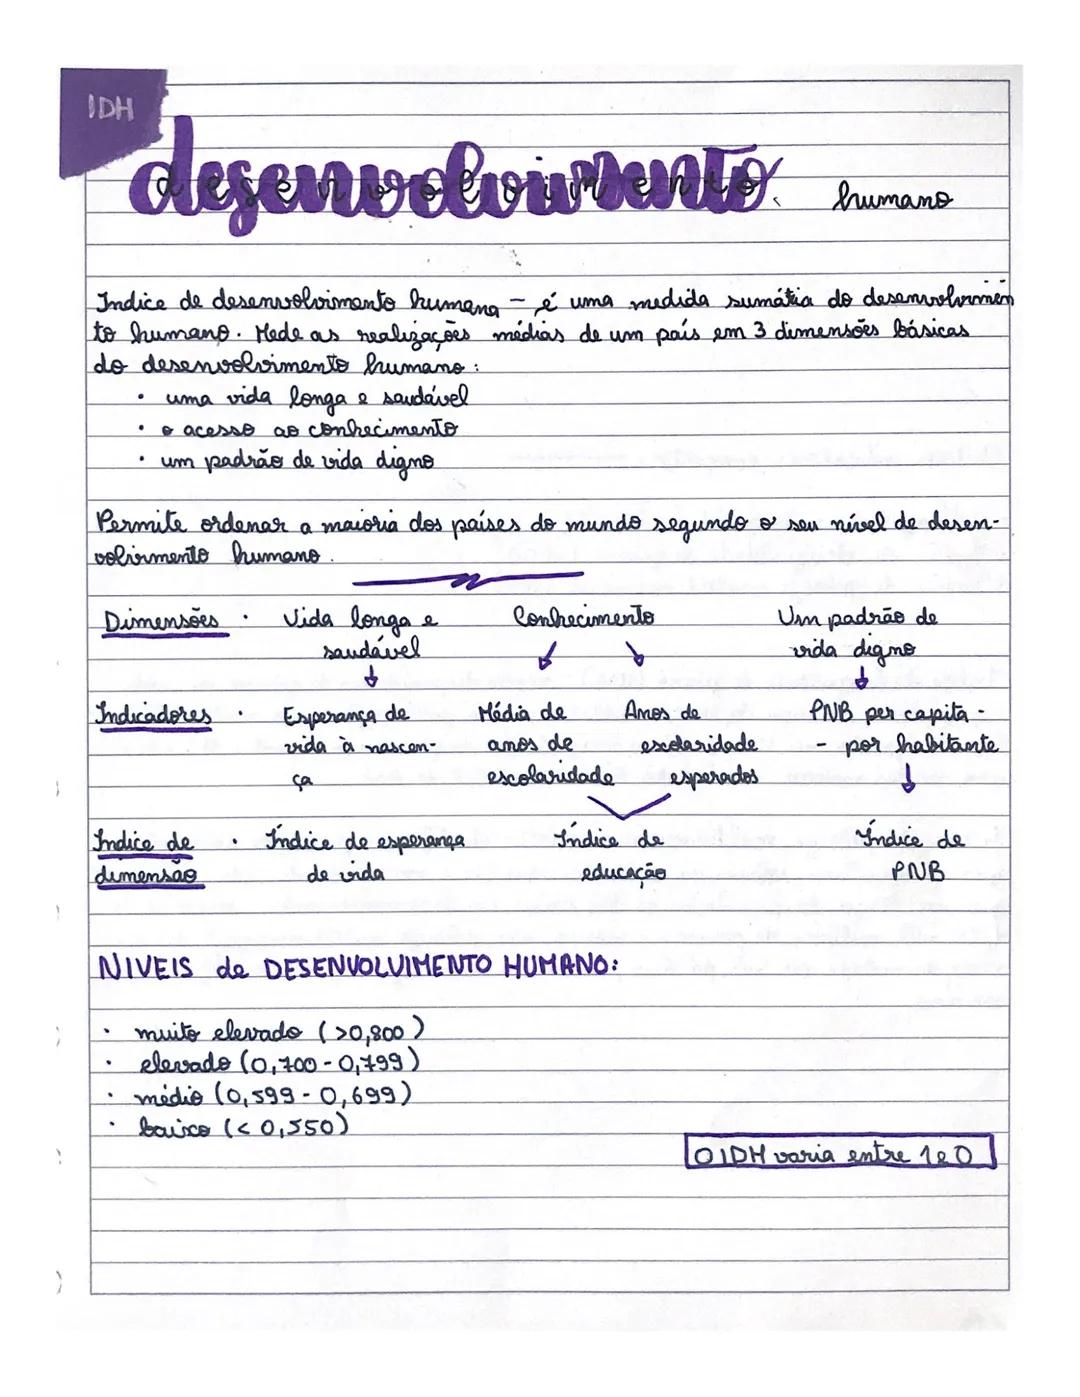 IDH
desenvolvimento humano
Indice de desenvolvimento humano - é uma medida sumátia do desenvolvimen
to humano. Mede as realizações médias de um país em 3 dimensões básicas
do desenvolvimento humano:
• uma vida longa e saudável
• o acesso ao conhecimento
• um padrão de vida digno
Permite ordenar a maioria dos países do mundo segundo o seu nível de desen-
volvimento humano.
Dimensões • Vida longa e Conhecimento Um padrão de
saudável vida digno
Indicadores • Esperança de Média de Anos de PNB per capita -
vida à nascen- anos de escolaridade - por habitante
ça escolaridade esperados
Indice de • Índice de esperança Índice de Índice de
dimensão de vida educação PNB
NIVEIS de DESENVOLVIMENTO HUMANO:
• muito elevado (>0,800)
• elevado (0,700-0,799)
• médio (0,599-0,699)
• baixo (<0,550)
O IDH varia entre 1 e 0